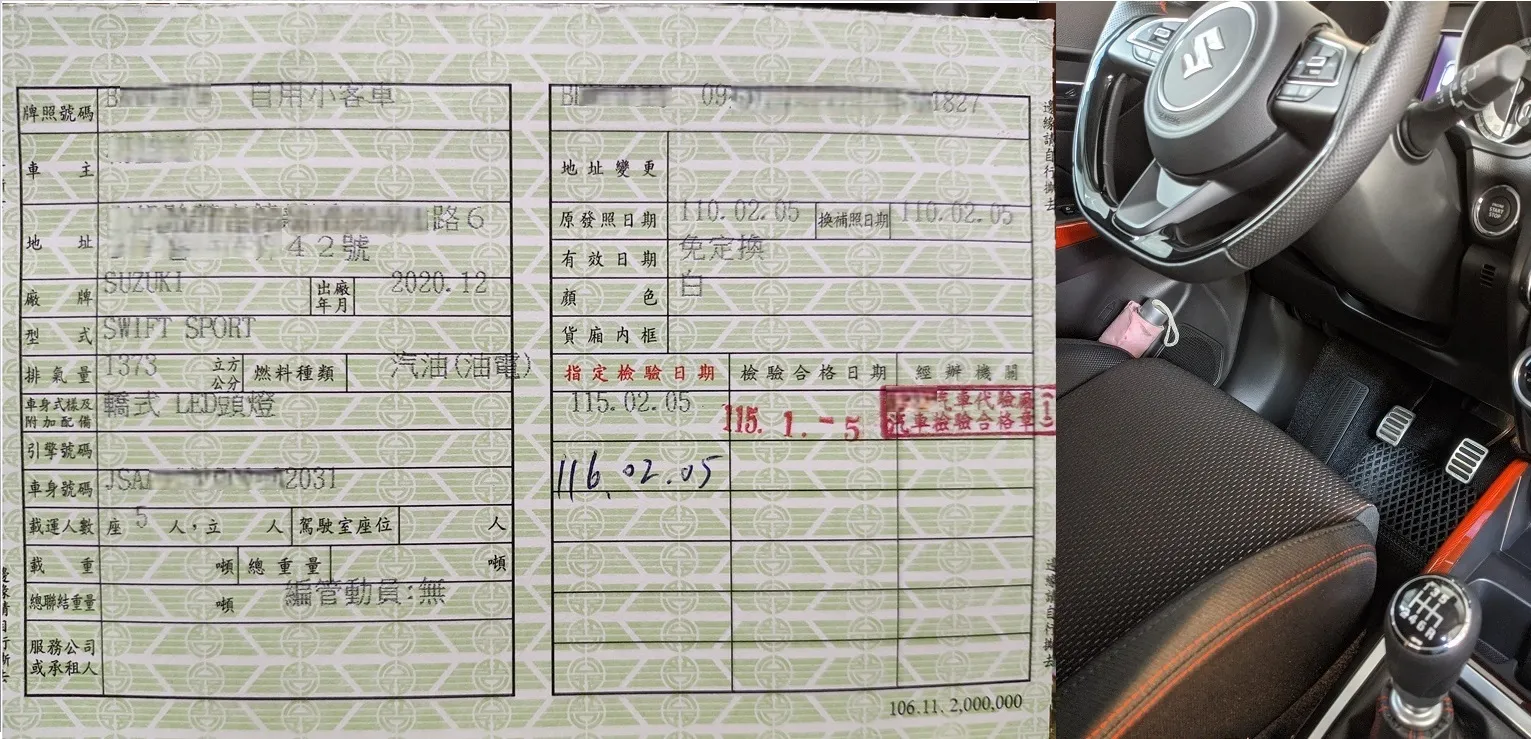 牌照號碼 自用小客車
車主
地址 路6
42號
廠牌 SUZUKI 出廠年月 2020.12
型式 SWIFT SPORT
排氣量 1373 立方公分 燃料種類 汽油(油電)
車身式樣及附加配備 轎式 LED頭燈
引擎號碼
車身號碼 JSA 2031
載運人數 座 5 人,立 人 駕駛室座位 人
載重 噸 總重量 噸
總聯結重量 噸 編管動員:無
服務公司或承租人
09 1827
地址變更
原發照日期 110.02.05 換補照日期 110.02.05
有效日期 免定換
顏色 白
貨廂內框
指定檢驗日期 檢驗合格日期 經辦機關
115.02.05 115.1.-5 汽車代驗廠
汽車檢驗合格章(1)
116.02.05
106.11. 2,000,000
邊緣請自行撕去
ENGINE
START
STOP
1 3 5
2 4 6 R